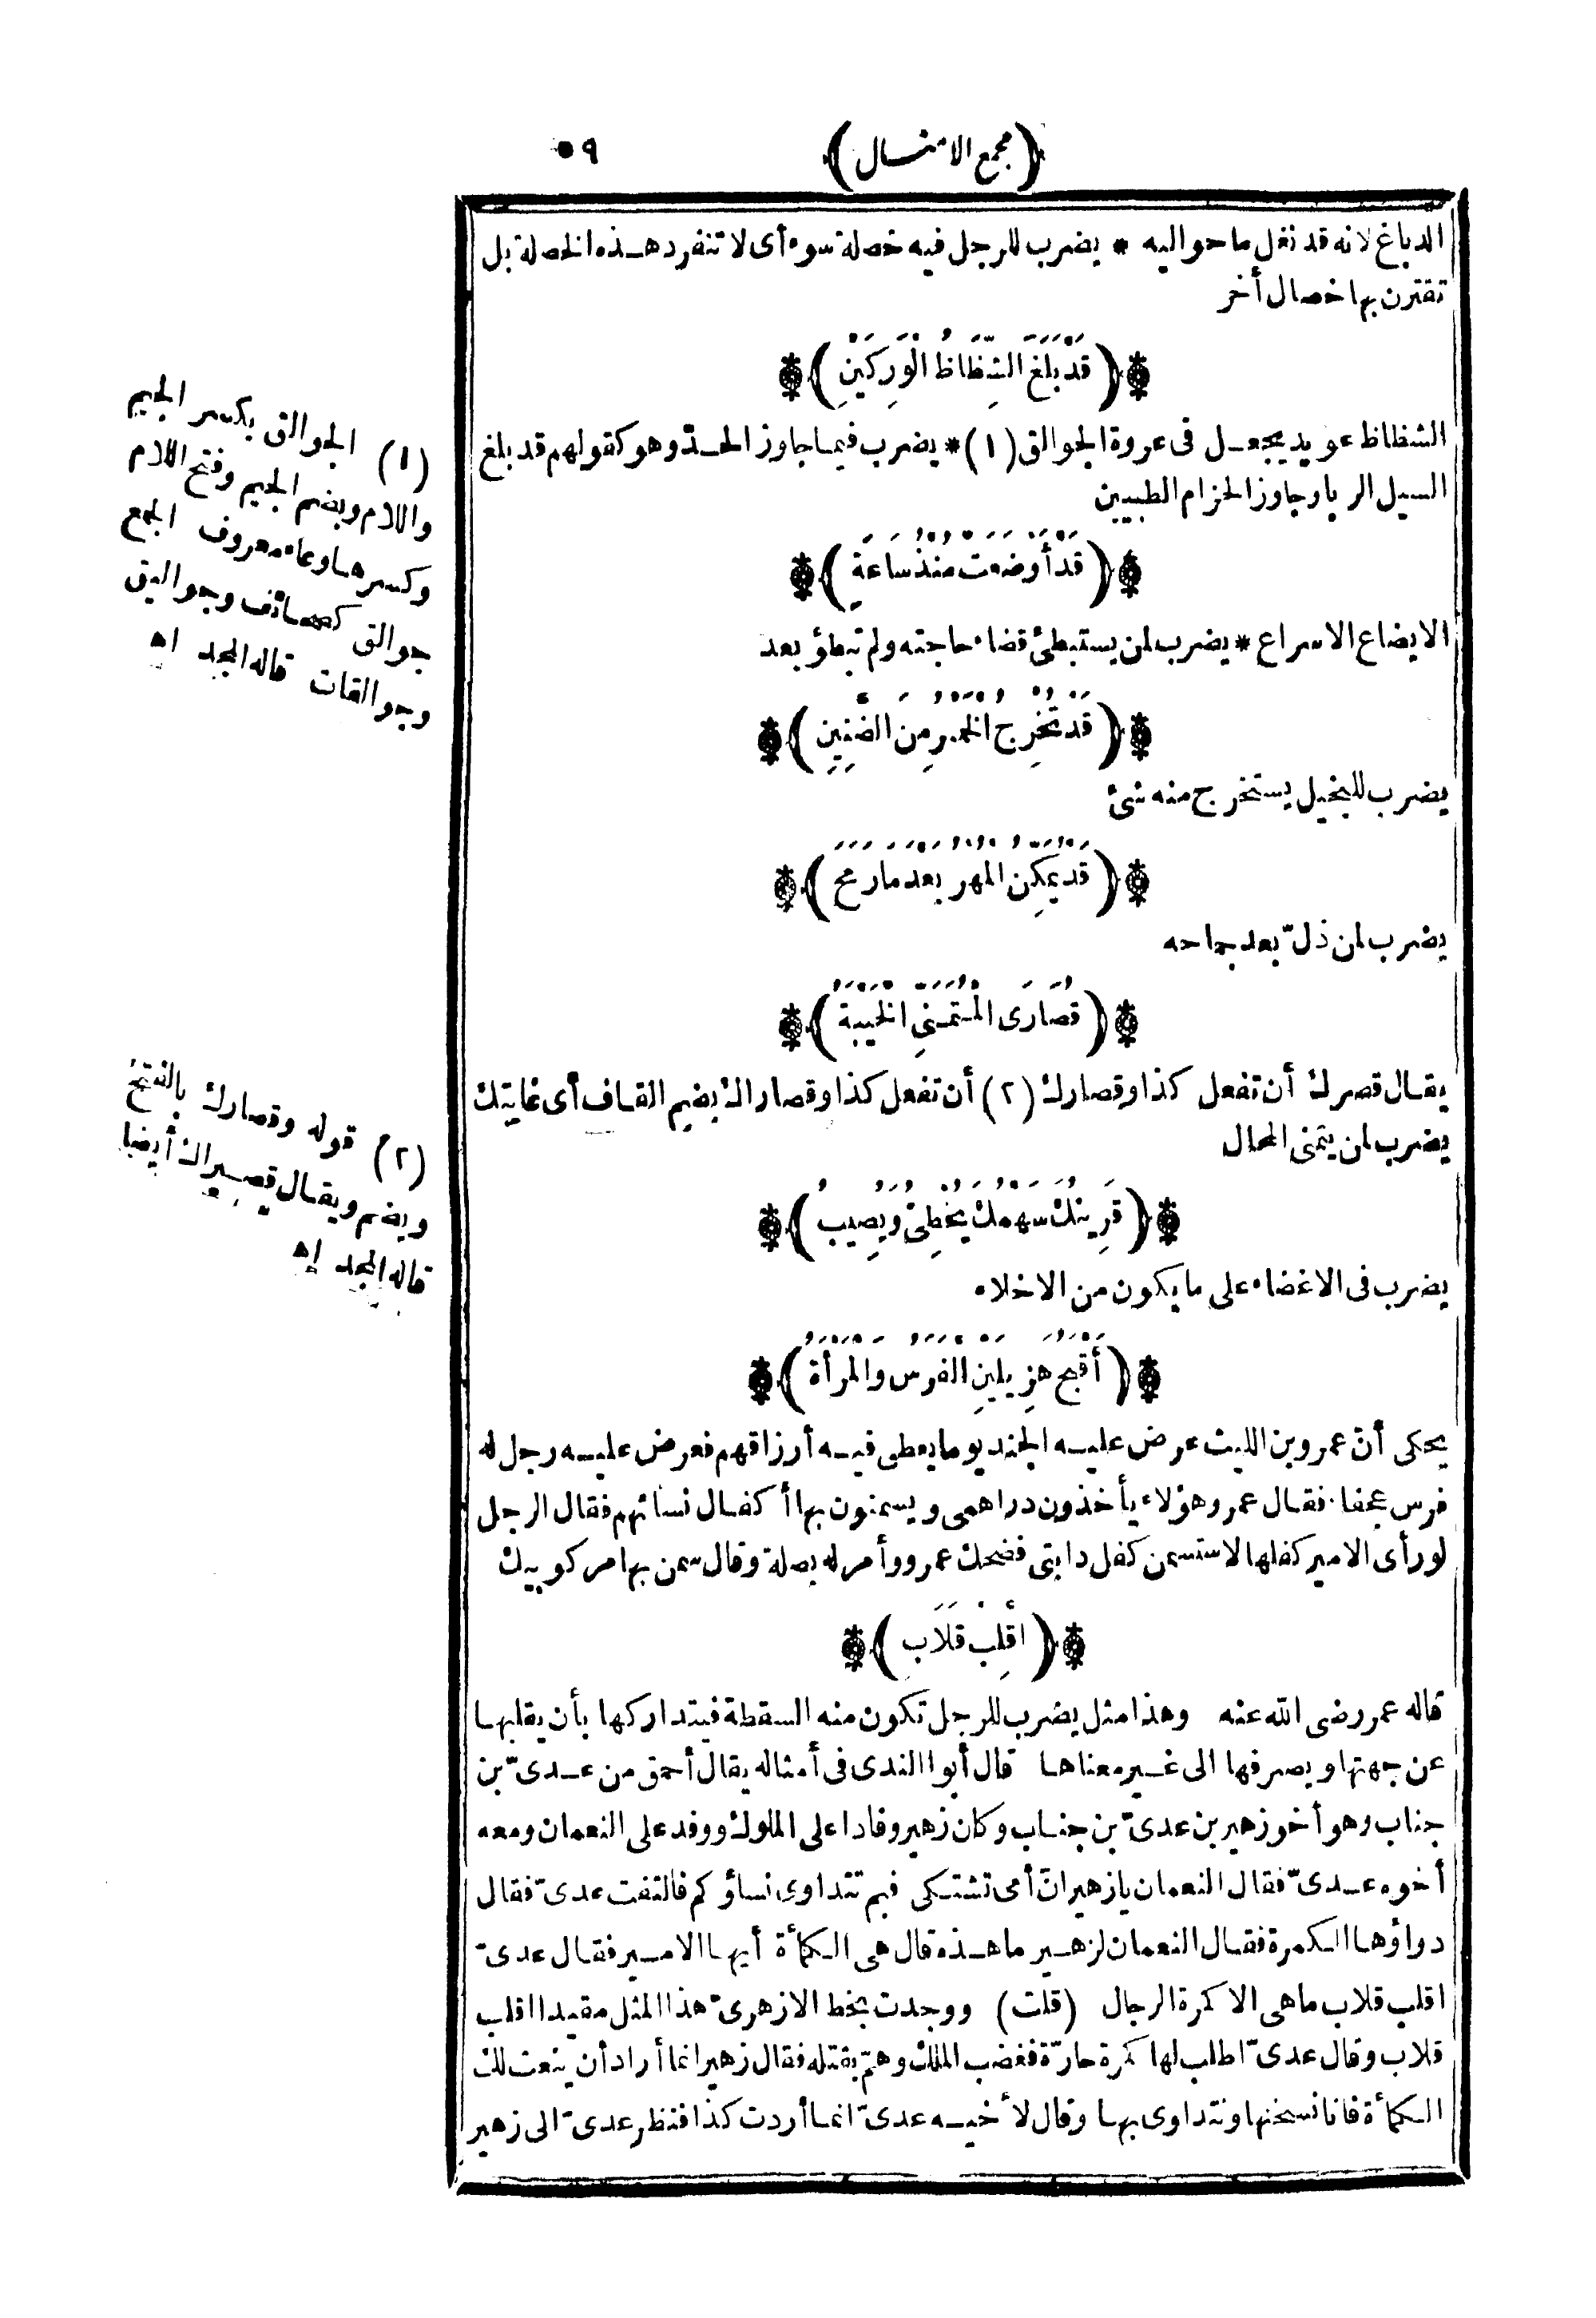 (مجمع الامثال) ٥٩
الدباغ لانه قد نغل ما حواليه * يضرب للرجل فيه خصلة سوء أى لا تنفرد هذه الخصلة بل
تقترن بها خصال أخر
(قَدْ بَلَغَ الشِّظَاظُ الْوَرِكَيْنِ)
الشظاظ عويد يجعل فى عروة الجوالق (١) * يضرب فيما جاوز الحدّ وهو كقولهم قد بلغ
السيل الربا وجاوز الحزام الطبيين
(قَدْ أَوْضَعْتُ مُنْذُ سَاعَةٍ)
الايضاع الاسراع * يضرب لمن يستبطئ قضاء حاجته ولم تبطؤ بعد
(قَدْ تُخْرِجُ الْخَمْرُ مِنَ الضَّنِينِ)
يضرب للبخيل يستخرج منه شئ
(قَدْ يُمَكَّنُ الْمُهْرُ بَعْدَ مَا رَمَحَ)
يضرب لمن ذلّ بعد جماحه
(قُصَارَى الْمُتَمَنِّى الْخَيْبَةُ)
يقال قصرك أن تفعل كذا وقصارك (٢) أن تفعل كذا وقصاراك بضم القاف أى غايتك
يضرب لمن يتمنى المحال
(قَرِينُكَ سَهْمُكَ يُخْطِئُ وَيُصِيبُ)
يضرب فى الاغضاء على ما يكون من الاخلاء
(أَقْبَحُ هَزِيلَيْنِ الْفَرَسُ وَالْمَرْأَةُ)
يحكى أنّ عمرو بن الليث عرض عليه الجند يوما يعطى فيه أرزاقهم فعرض عليه رجل له
فرس عجفاء فقال عمرو هؤلاء يأخذون دراهمى ويسمنون بها أكفال نسائهم فقال الرجل
لو رأى الامير كفلها لاستسمن كفل دابتى فضحك عمرو وأمر له بصلة وقال سمن بها مركوبيك
(اقْلِبْ قَلَابِ)
قاله عمر رضى الله عنه وهذا مثل يضرب للرجل تكون منه السقطة فيتداركها بأن يقلبها
عن جهتها ويصرفها الى غير معناها قال أبو الندى فى أمثاله يقال أحمق من عدىّ بن
جناب وهو أخو زهير بن عدىّ بن جناب وكان زهير وفادا على الملوك ووفد على النعمان ومعه
أخوه عدىّ فقال النعمان يا زهير انّ أمى تشتكى فبم تتداوى نساؤكم فالتفت عدىّ فقال
دواؤها الكمرة فقال النعمان لزهير ما هذه قال هى الكمأة أيها الامير فقال عدىّ
اقلب قلاب ما هى الا كمرة الرجال (قلت) ووجدت بخط الازهرىّ هذا المثل مقيدا اقلب
قلاب وقال عدىّ اطلب لها كمرة حارّة فغضب الملك وهمّ بقتله فقال زهير انما أراد أن ينعت لك
الكمأة فانا نسخنها ونتداوى بها وقال لأخيه عدىّ انما أردت كذا فنظر عدىّ الى زهير
(١) الجوالق بكسر الجيم
واللام وبضم الجيم وفتح اللام
وكسرها وعاء معروف الجمع
جوالق كصحائف وجواليق
وجوالقات قاله المجد اه
(٢) قوله وقصارك بالفتح
ويضم ويقال قصيراك أيضا
قاله المجد اه